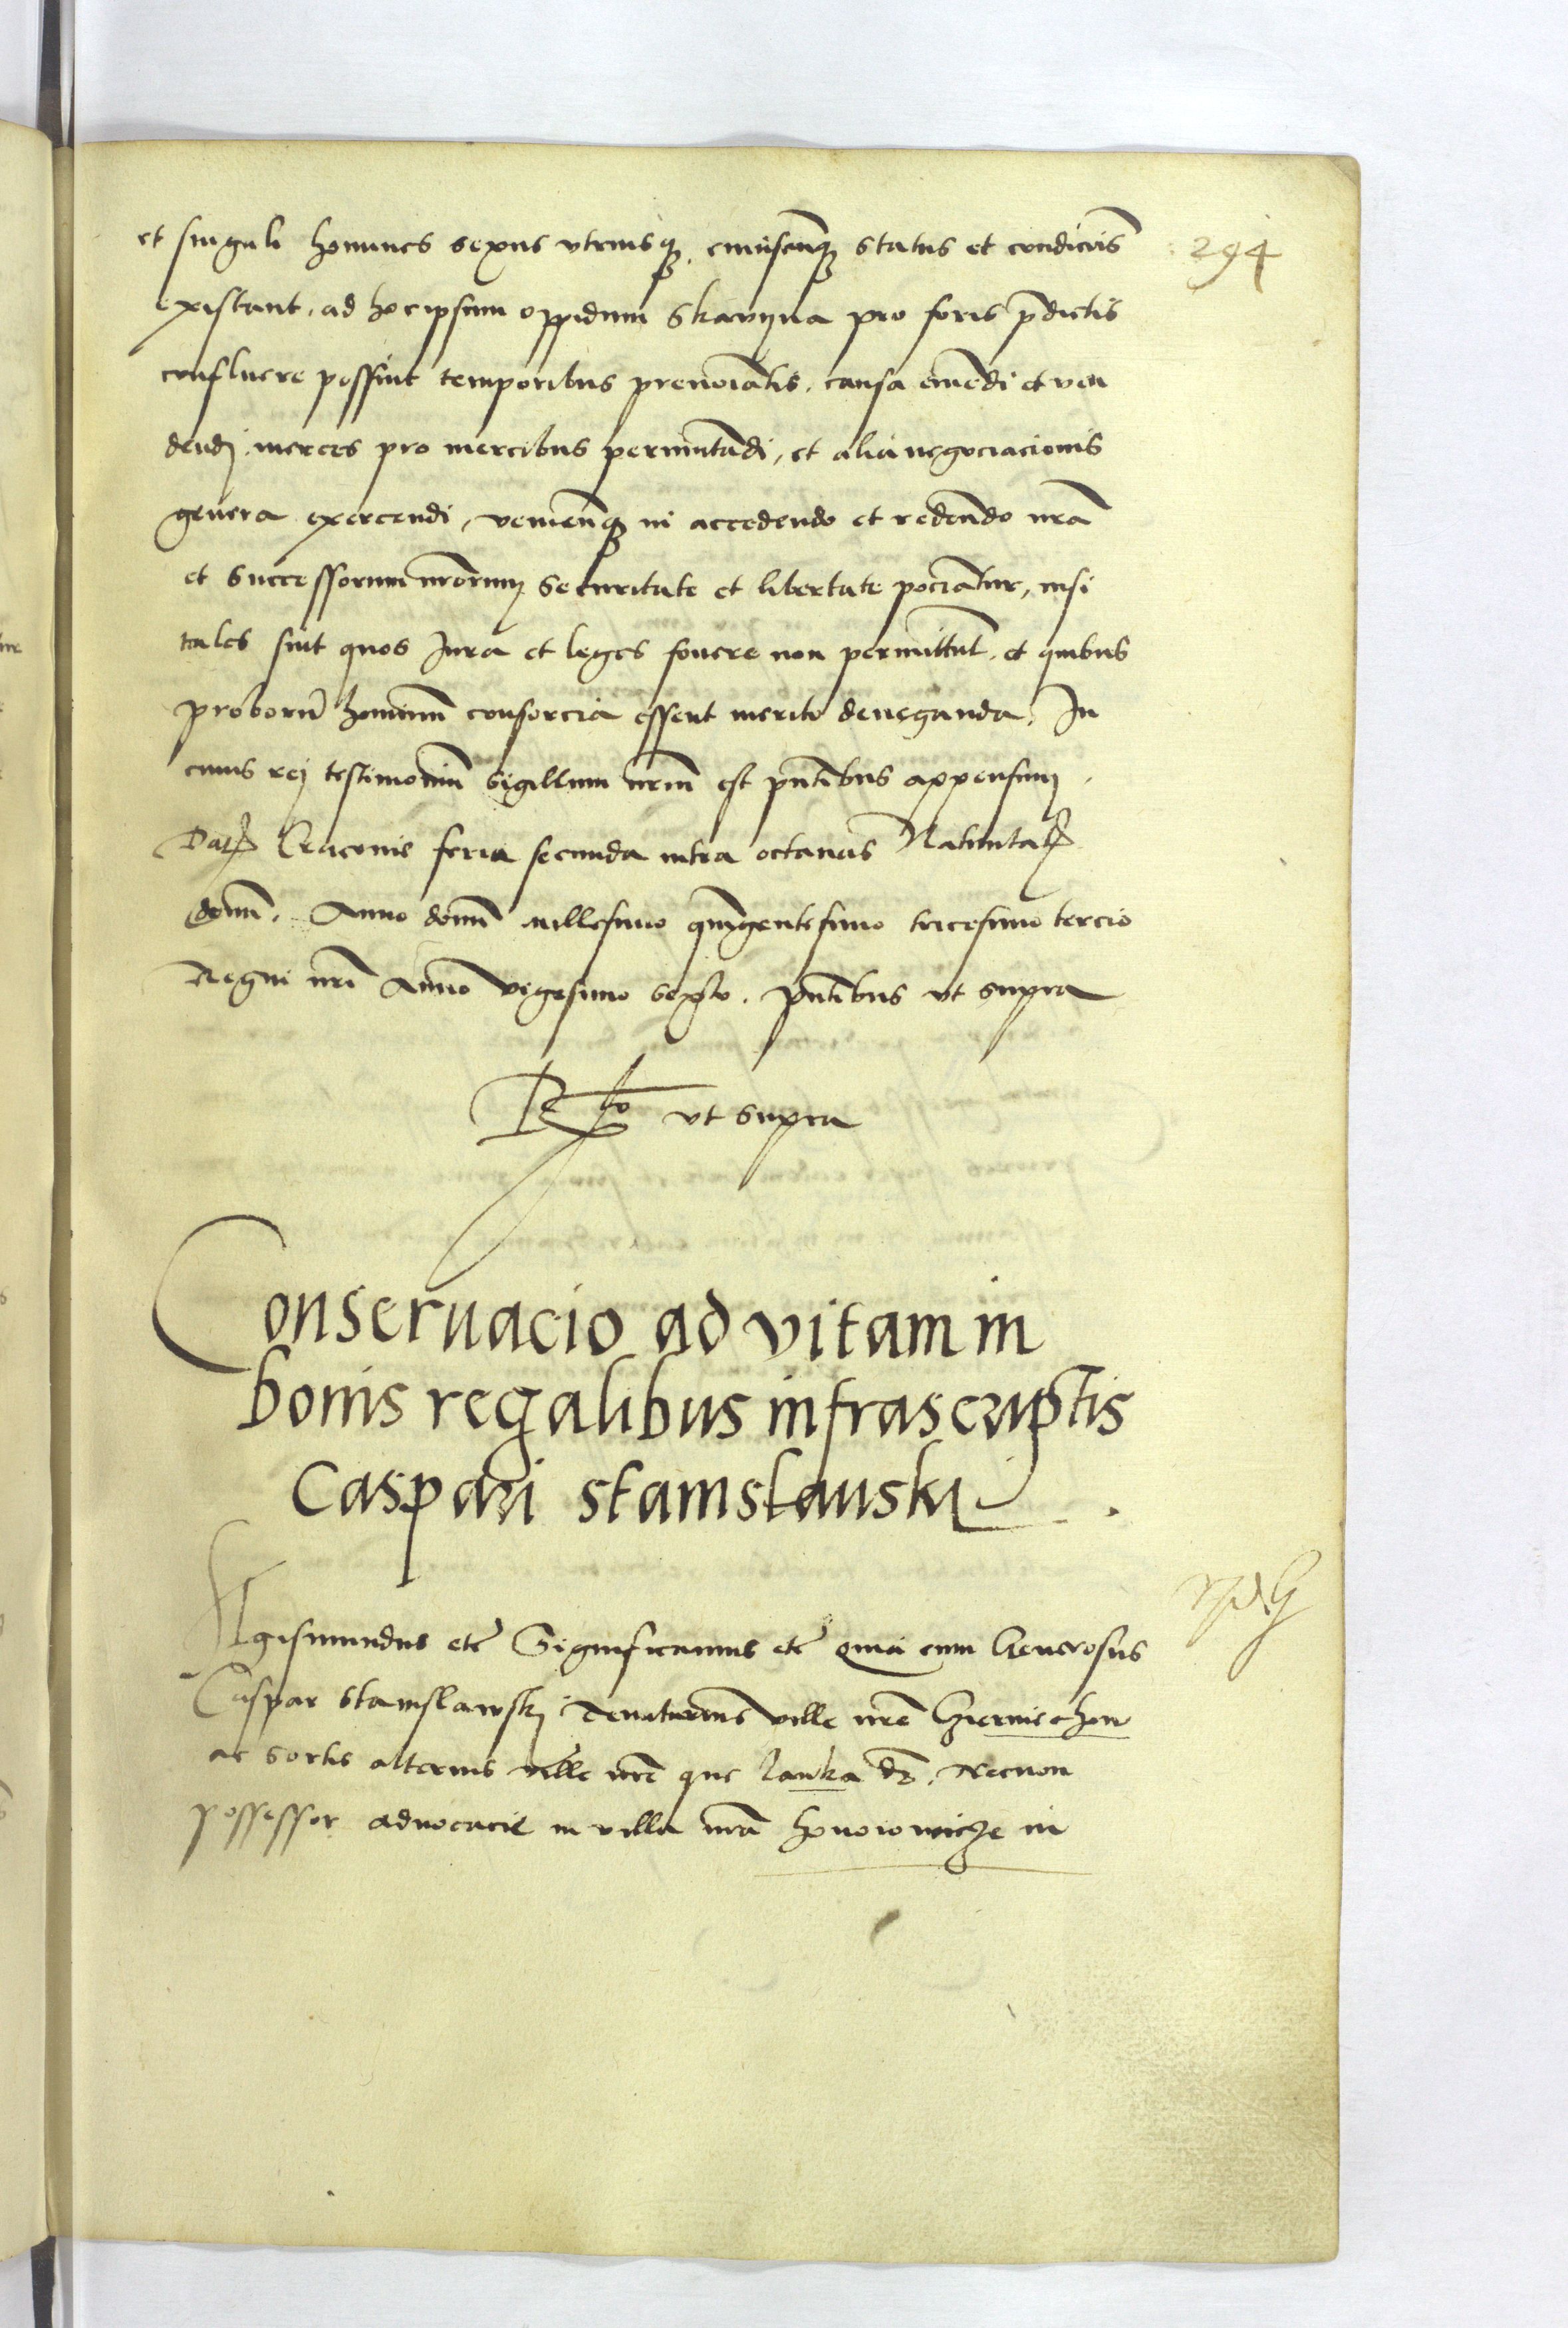 294
et singuli homines sexus vtriusq, cuiuscunq status et condicōis
existant, ad hoc ipsum oppidum Skavyna pro foris p̄dictis
confluere possint temporibus prenoīatis, causa emēdi et ven
dendj, merces pro mercibus permutādi, et alia negociacionis
genera exercendi, venienq in accedendo et redeūdo nrā
et successorum nrōrum securitate et libertate pociātur, nisi
tales sint quos Jura et leges fovere non permittūt, et quibus
proborū hominum consorcia essent merito deneganda. In
cuius rej testimoniū sigillum nrm̄ est pn̄tibus appensum.
Dat Cracovie feria secunda intra octauas Natiuitat
domī. Anno domī millesimo quīgentesimo tricesimo tercio
Regni nrī Anno vigesimo sexto. pn̄tibus vt supra
Relo vt supra
Conseruacio ad vitam in
bonis regalibus infrascriptis
Caspari stanislauskj.
Sigismundus etc̄ Significamus etc̄ Quia cum Generosus
Caspar Stanislawskj Tenutarius ville nrē Czerniechow
ac sortis alterius ville nrē que Lanka dr̄, Necnon
possessor aduocacie in villa nrā honoiowicze in